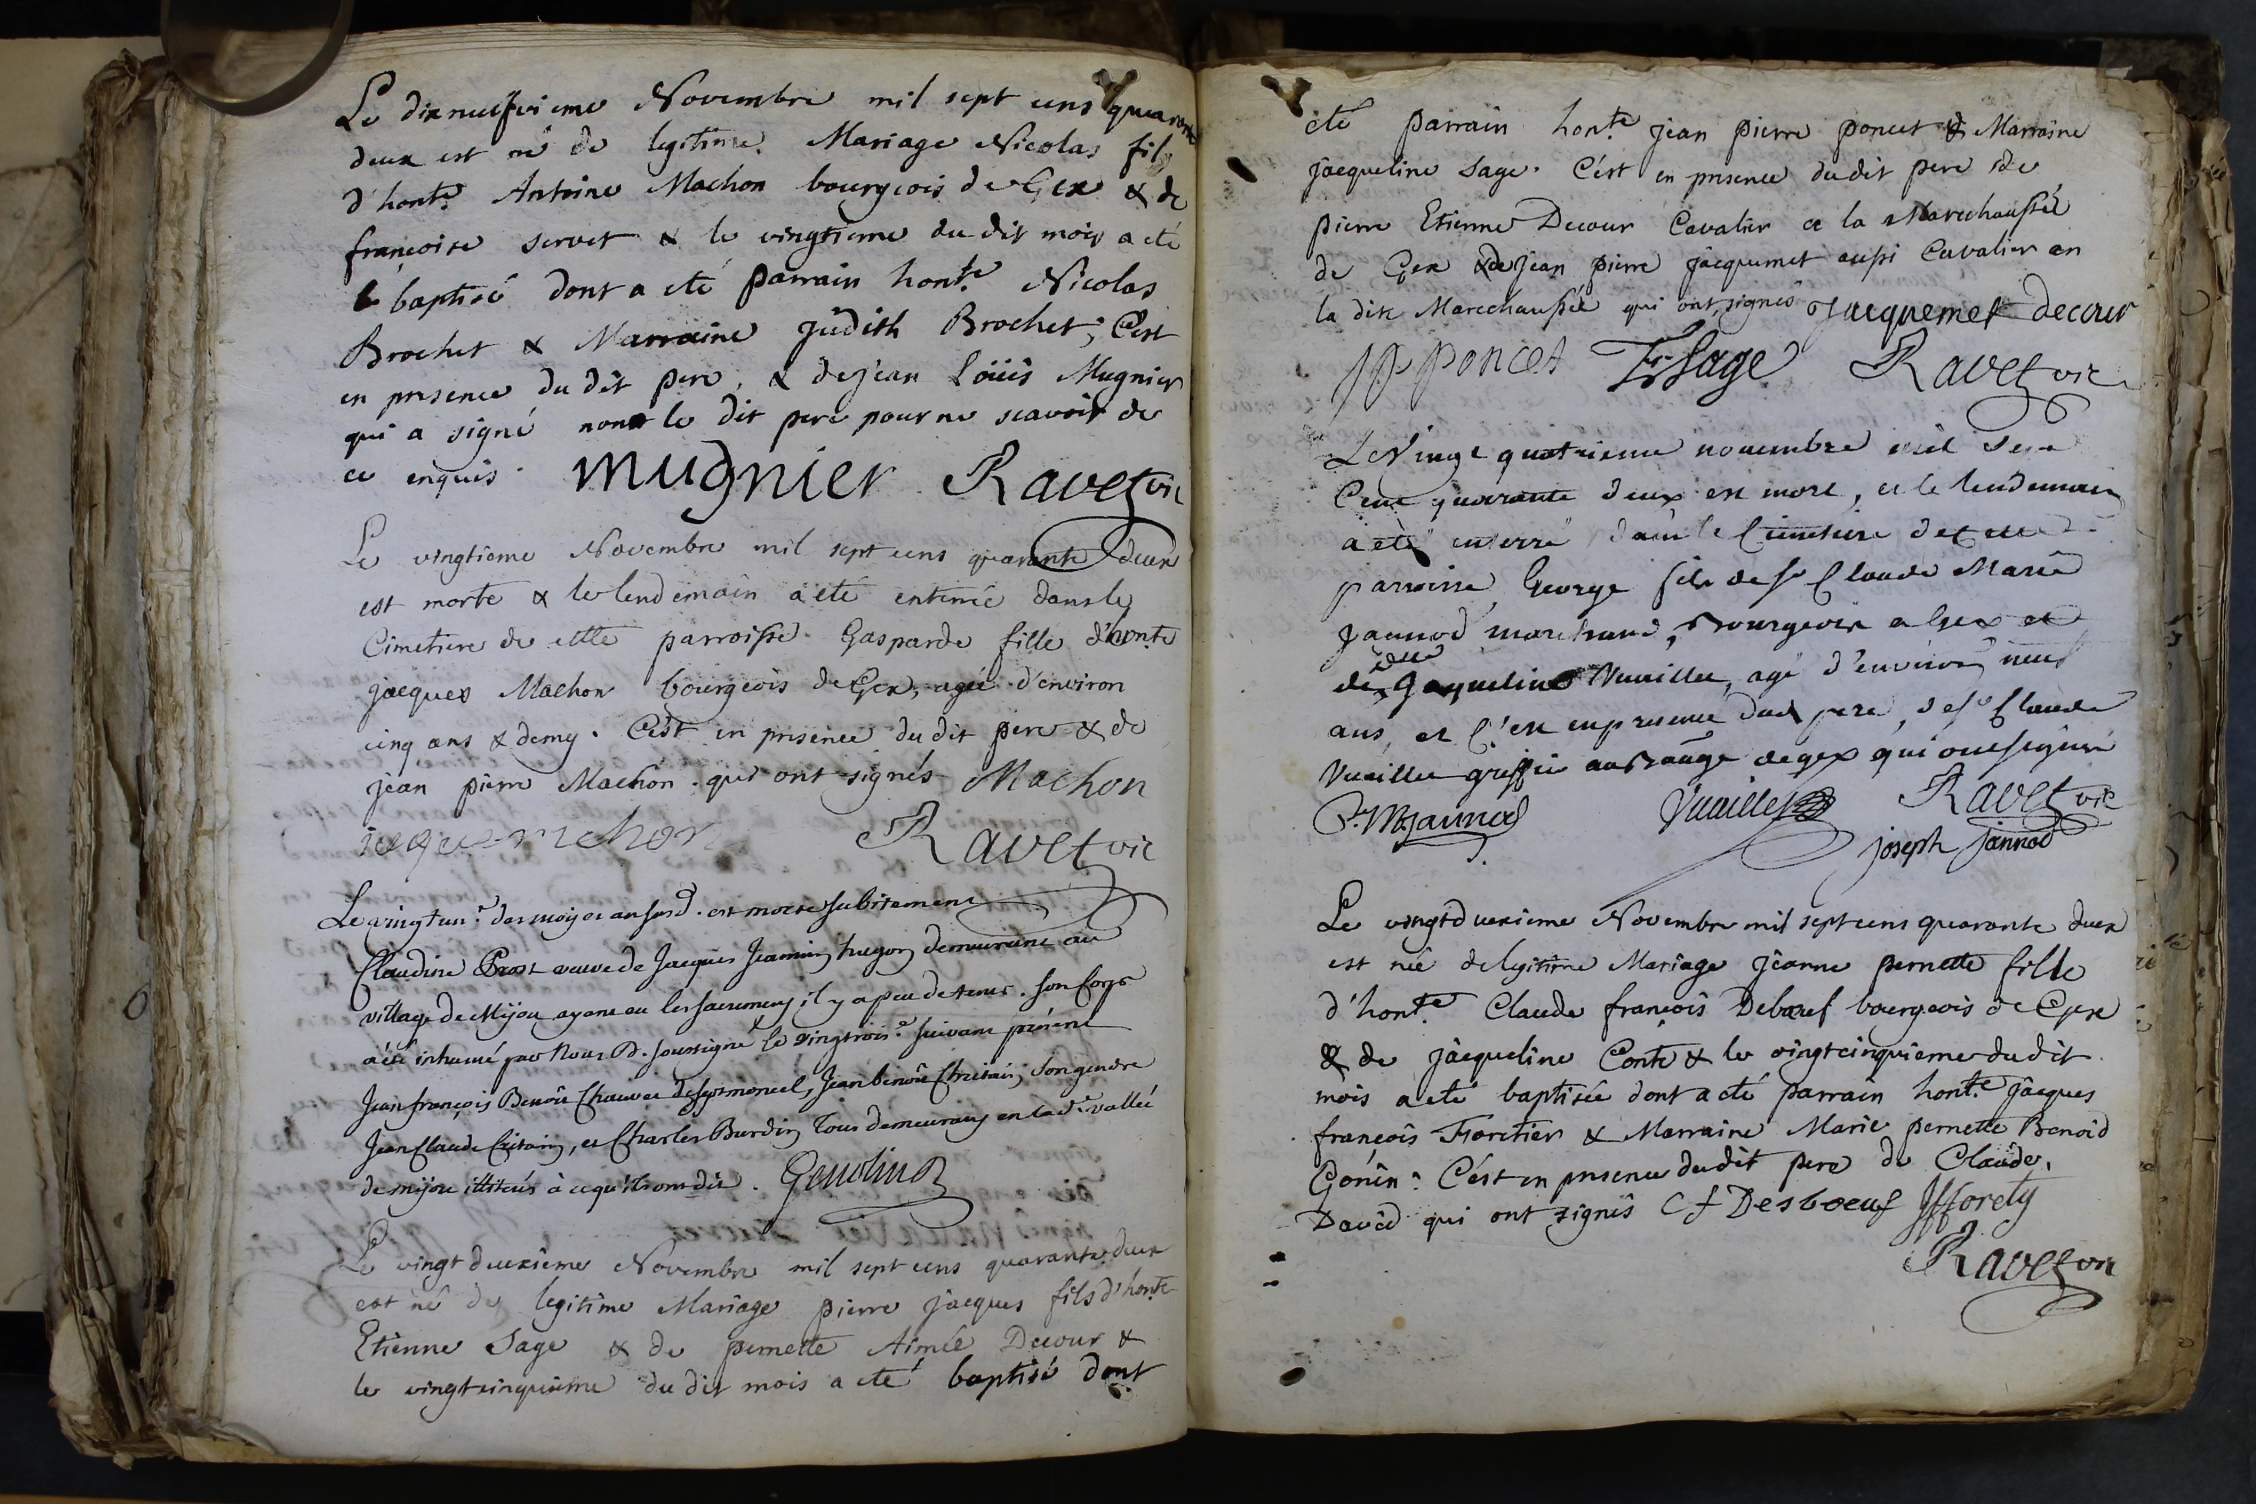 Le dixneufvieme Novembre mil sept cens quarante
deux est né de legitime Mariage Nicolas fils
d'hont.e Antoine Machon bourgeois de Gex & de
francoise servet & le vingtieme du dit mois a eté
baptisé dont a eté parrain hont.e Nicolas
Brochet & Marraine Judith Brochet; C'est
en presence du dit pere, & de jean Loüis Mugnier
qui a signé non le dit pere pour ne scavoir de
ce enquis. Mugnier Ravet vic
Le vingtieme Novembre mil sept cens quarante deux
est morte & le lendemain a eté enterrée dans le
Cimetiere de cette parroisse Gasparde fille d'honte
jacques Machon bourgeois de Gex, agée d'environ
cinq ans & demy. C'est en presence du dit pere & de
jean pierre Machon qui ont signés Machon
Ravet vic
Le vingtun.e des mois et an susd. est morte subitement
Claudine Prost veuve de Jacques Jeannin hugon demeurant au
village de Mijou ayant eu les sacremens il y a peu de tems. son corps
a été inhumé par Nous soussigné le vingtrois.e suivant présent
Jean françois Benoît Chauvet de septmoncel, Jean benoît son gendre
Jean Claude, et Charles Burdin Tous demeurans en lad.e vallée
de mijou illiterés à ce qu'ils ont dit.
Le vingt deuxième Novembre mil sept cens quarante deux
est né de legitime Mariage pierre jacques fils d'honte
Etienne Sage & de pernette Aimée Decour &
le vingtcinquieme du dit mois a eté baptisé dont
eté parrain hont.e jean pierre poncet & Marraine
jacqueline sage. C'est en presence du dit pere de
pierre Etienne Decour Cavalier de la Marechaussée
de Gex & de jean pierre jacquemet aussi Cavalier en
la dite Marechaussée qui ont signés Jacquemet decour
jp poncet Sage Ravet vic
Le Vingt quatrieme novembre mil sept
Cent quarante deux est mort, et le lendemain
a eté enterré dans le Cimetiere de cette
parroisse George fils de s.r Claude Marie
Jannod marchand, Bourgeois a Gex et
de d.lle Jaqueline Vuaillet, agé d'environ neuf
ans, et C'est en presence dud pere, de s.r Claude
Vuaillet greffier de gex qui ont signé
Jannod Vuaillet Ravet vic
joseph jannod
Le vingtdeuxieme Novembre mil sept cens quarante deux
est née de legitime Mariage jeanne pernette fille
d'hont.e Claude françois Debœuf bourgeois de Gex
& de jacqueline Conte & le vingtcinquieme du dit
mois a eté baptisée dont a eté parrain hont.e jacques
françois Foretier & Marraine Marie pernette Benoid
Gonin. C'est en presence du dit pere de Claude
David qui ont signés Cf Desboeuf
Ravet vic